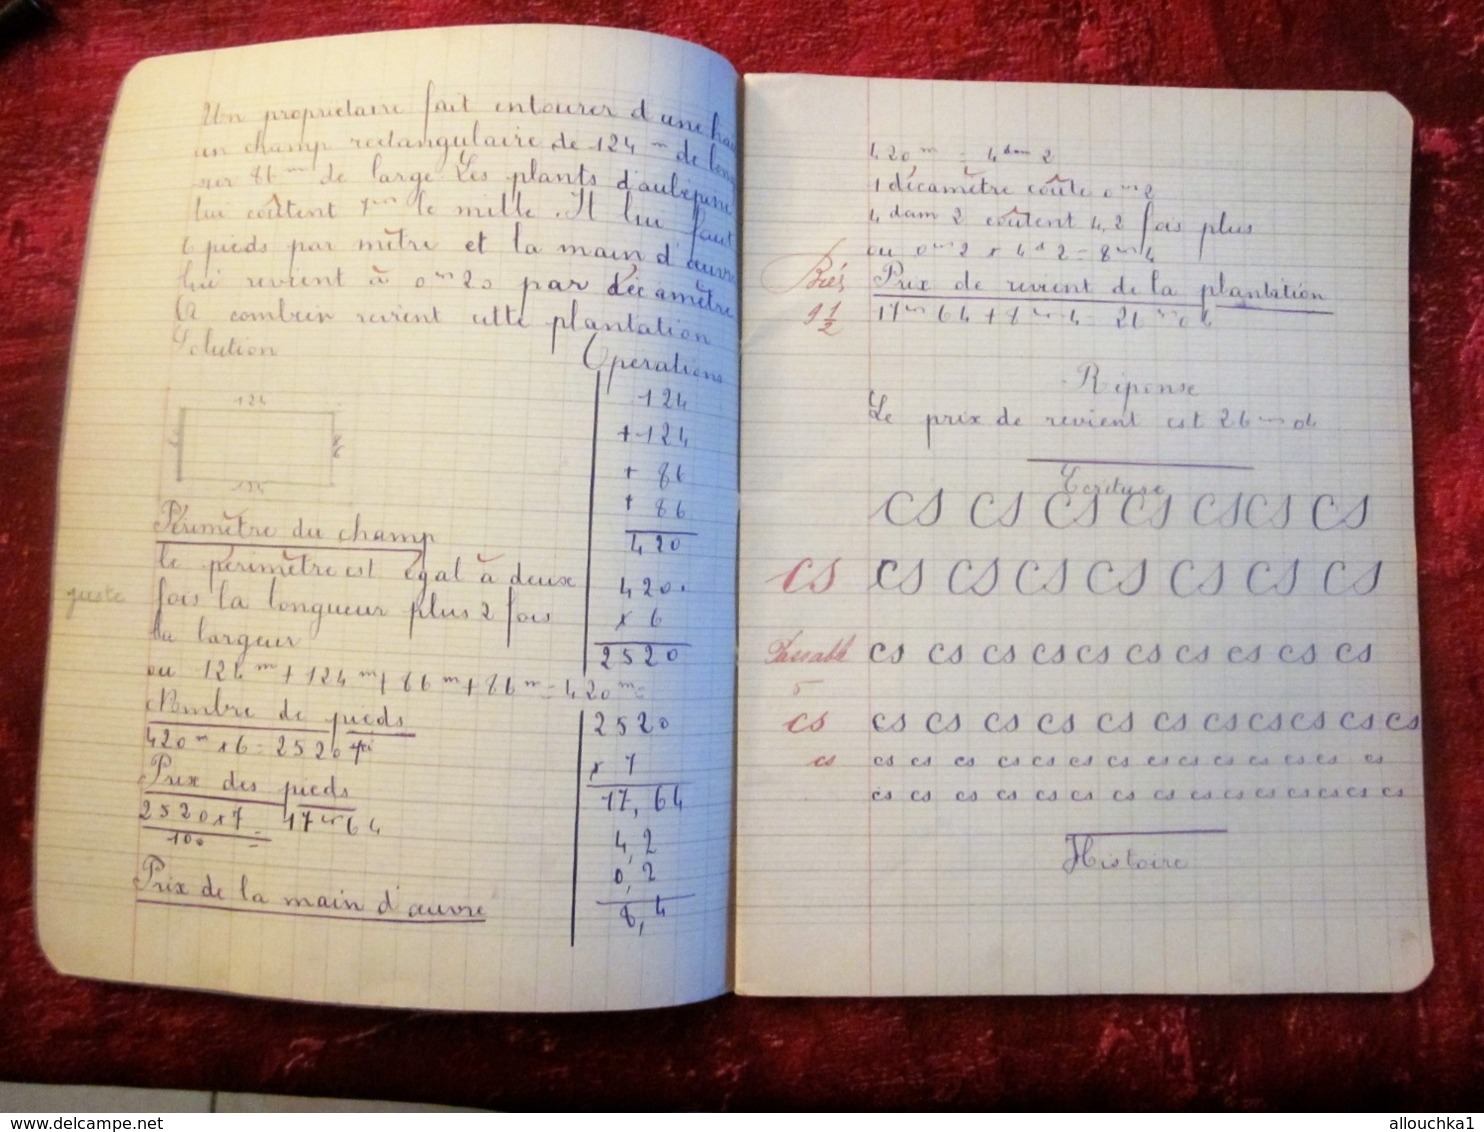 Un propriétaire fait entourer d'une haie
un champ rectangulaire de 124 m de long
sur 86 m de large. Les plants d'aubépine
lui coûtent 7 le mille. Il lui faut
6 pieds par mètre et la main d'œuvre
lui revient à 0 20 par décamètre
A combien revient cette plantation
Solution
Opérations
124
124
Périmètre du champ
le périmètre est égal à deux
fois la longueur plus 2 fois
la largeur
ou 124 m + 124 m + 86 m + 86 m = 420 m =
juste
Nombre de pieds
420 m x 6 = 2520
Prix des pieds
2520 x 7 = 17 64
100
Prix de la main d'œuvre
124
+ 124
+ 86
+ 86
420
420
x 6
2520
2520
x 7
17,64
4,2
0,2
8,4
420 m = 4 dam 2
1 décamètre coûte 0 2
4 dam 2 coûtent 4,2 fois plus
ou 0 2 x 4 d 2 = 8 4
Prix de revient de la plantation
17 64 + 8 4 = 26 04
Bien
9 1/2
Réponse
Le prix de revient est 26 04
Ecriture
cs cs cs cs cs cs cs
cs cs cs cs cs cs cs cs
Passable cs cs cs cs cs cs cs cs cs cs
5
cs cs cs cs cs cs cs cs cs cs cs cs
cs cs cs cs cs cs cs cs cs cs cs cs cs
cs cs cs cs cs cs cs cs cs cs cs cs cs
Histoire
www.delcampe.net
allouchka1